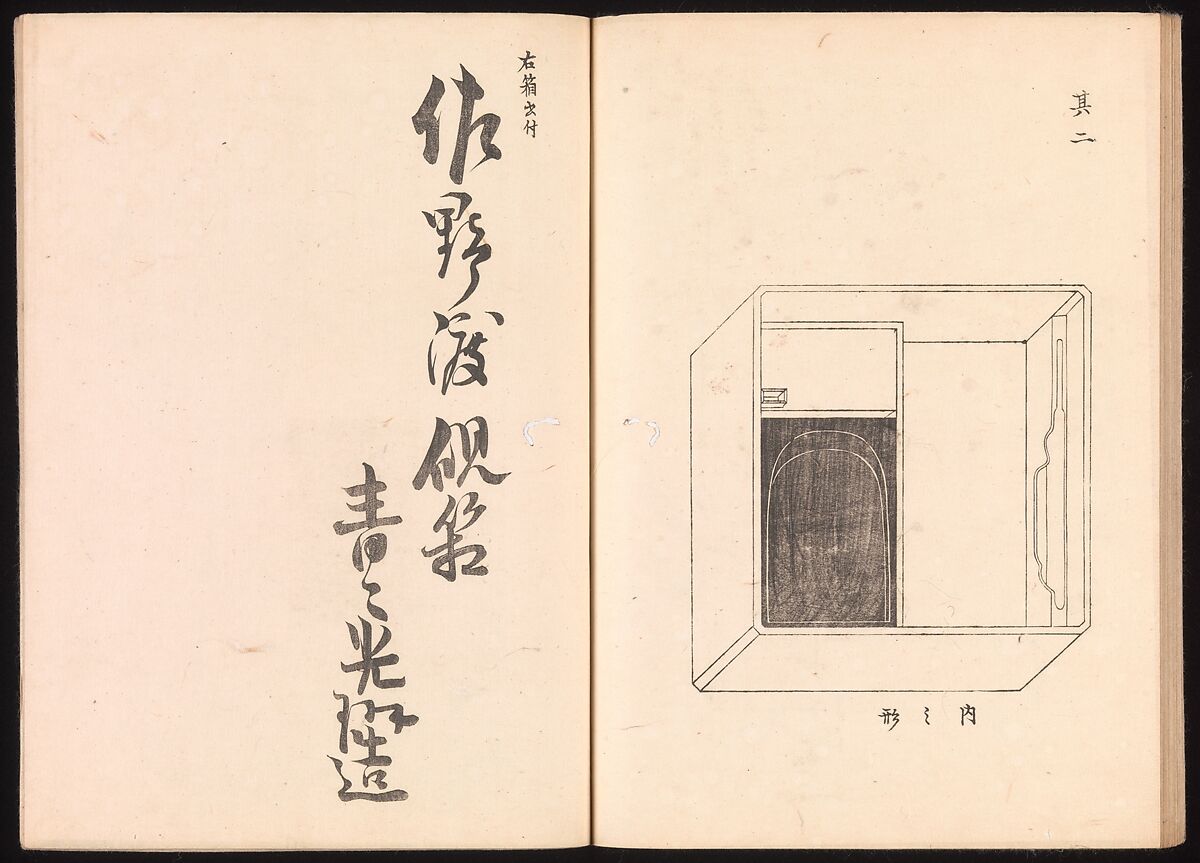 其二
内之形
右箱書付
佐野渡硯箱
青々光琳造